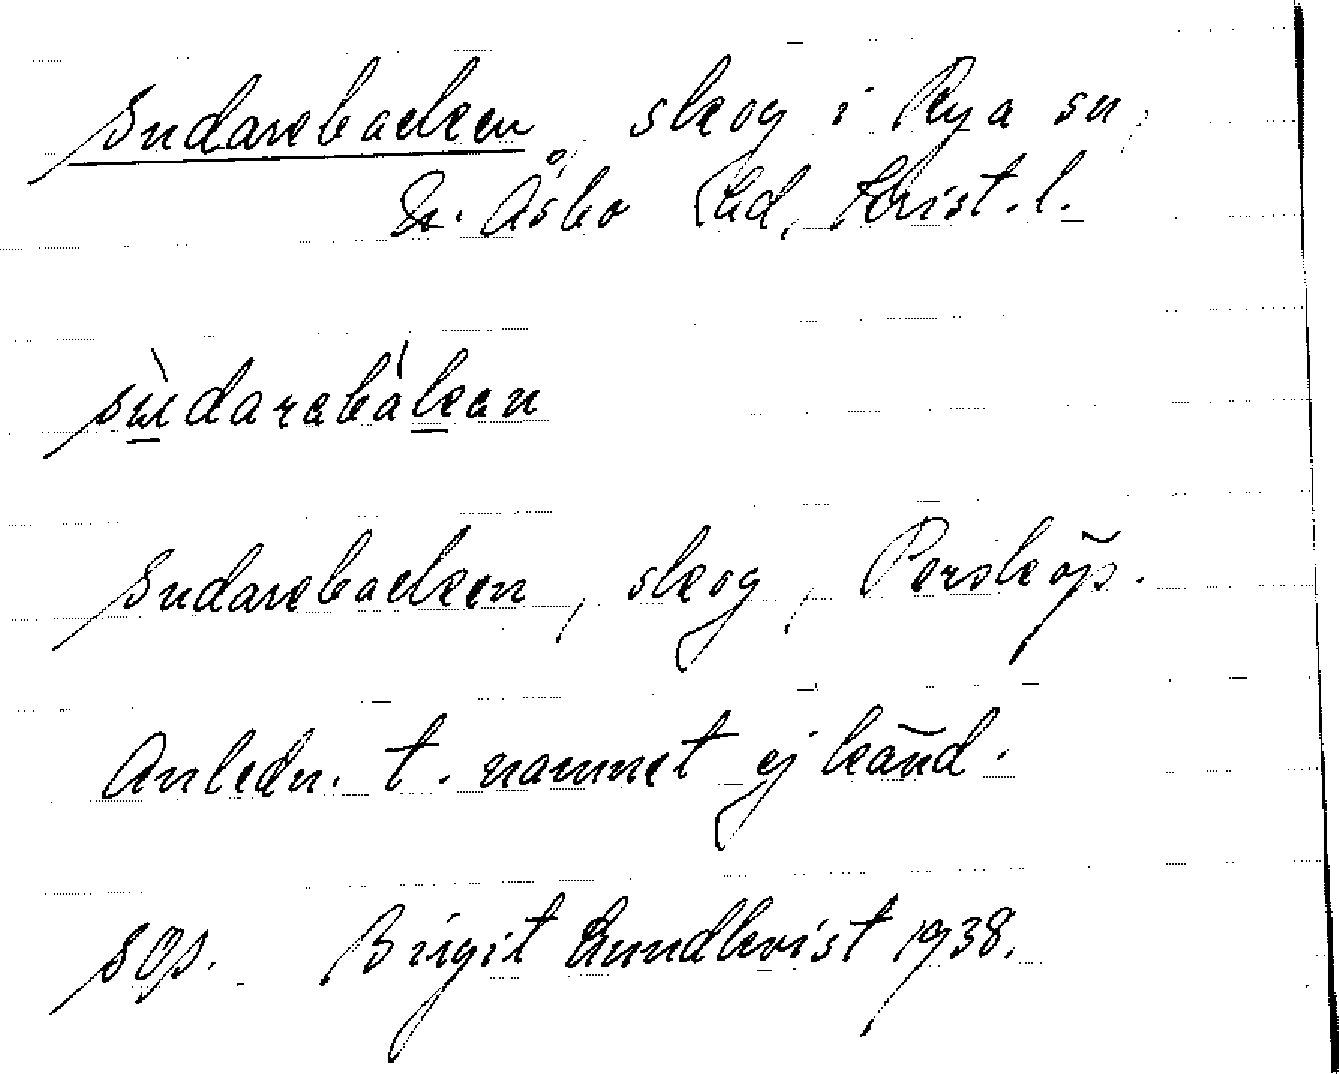 Sudarebacken, skog i Rya sn,
N. Åsbo hd, Krist. l.
sùdarebákan
Sudarebacken, skog, Persköp.
Anledn. t. namnet ej känd.
SOp. Birgit Lundkvist 1938.